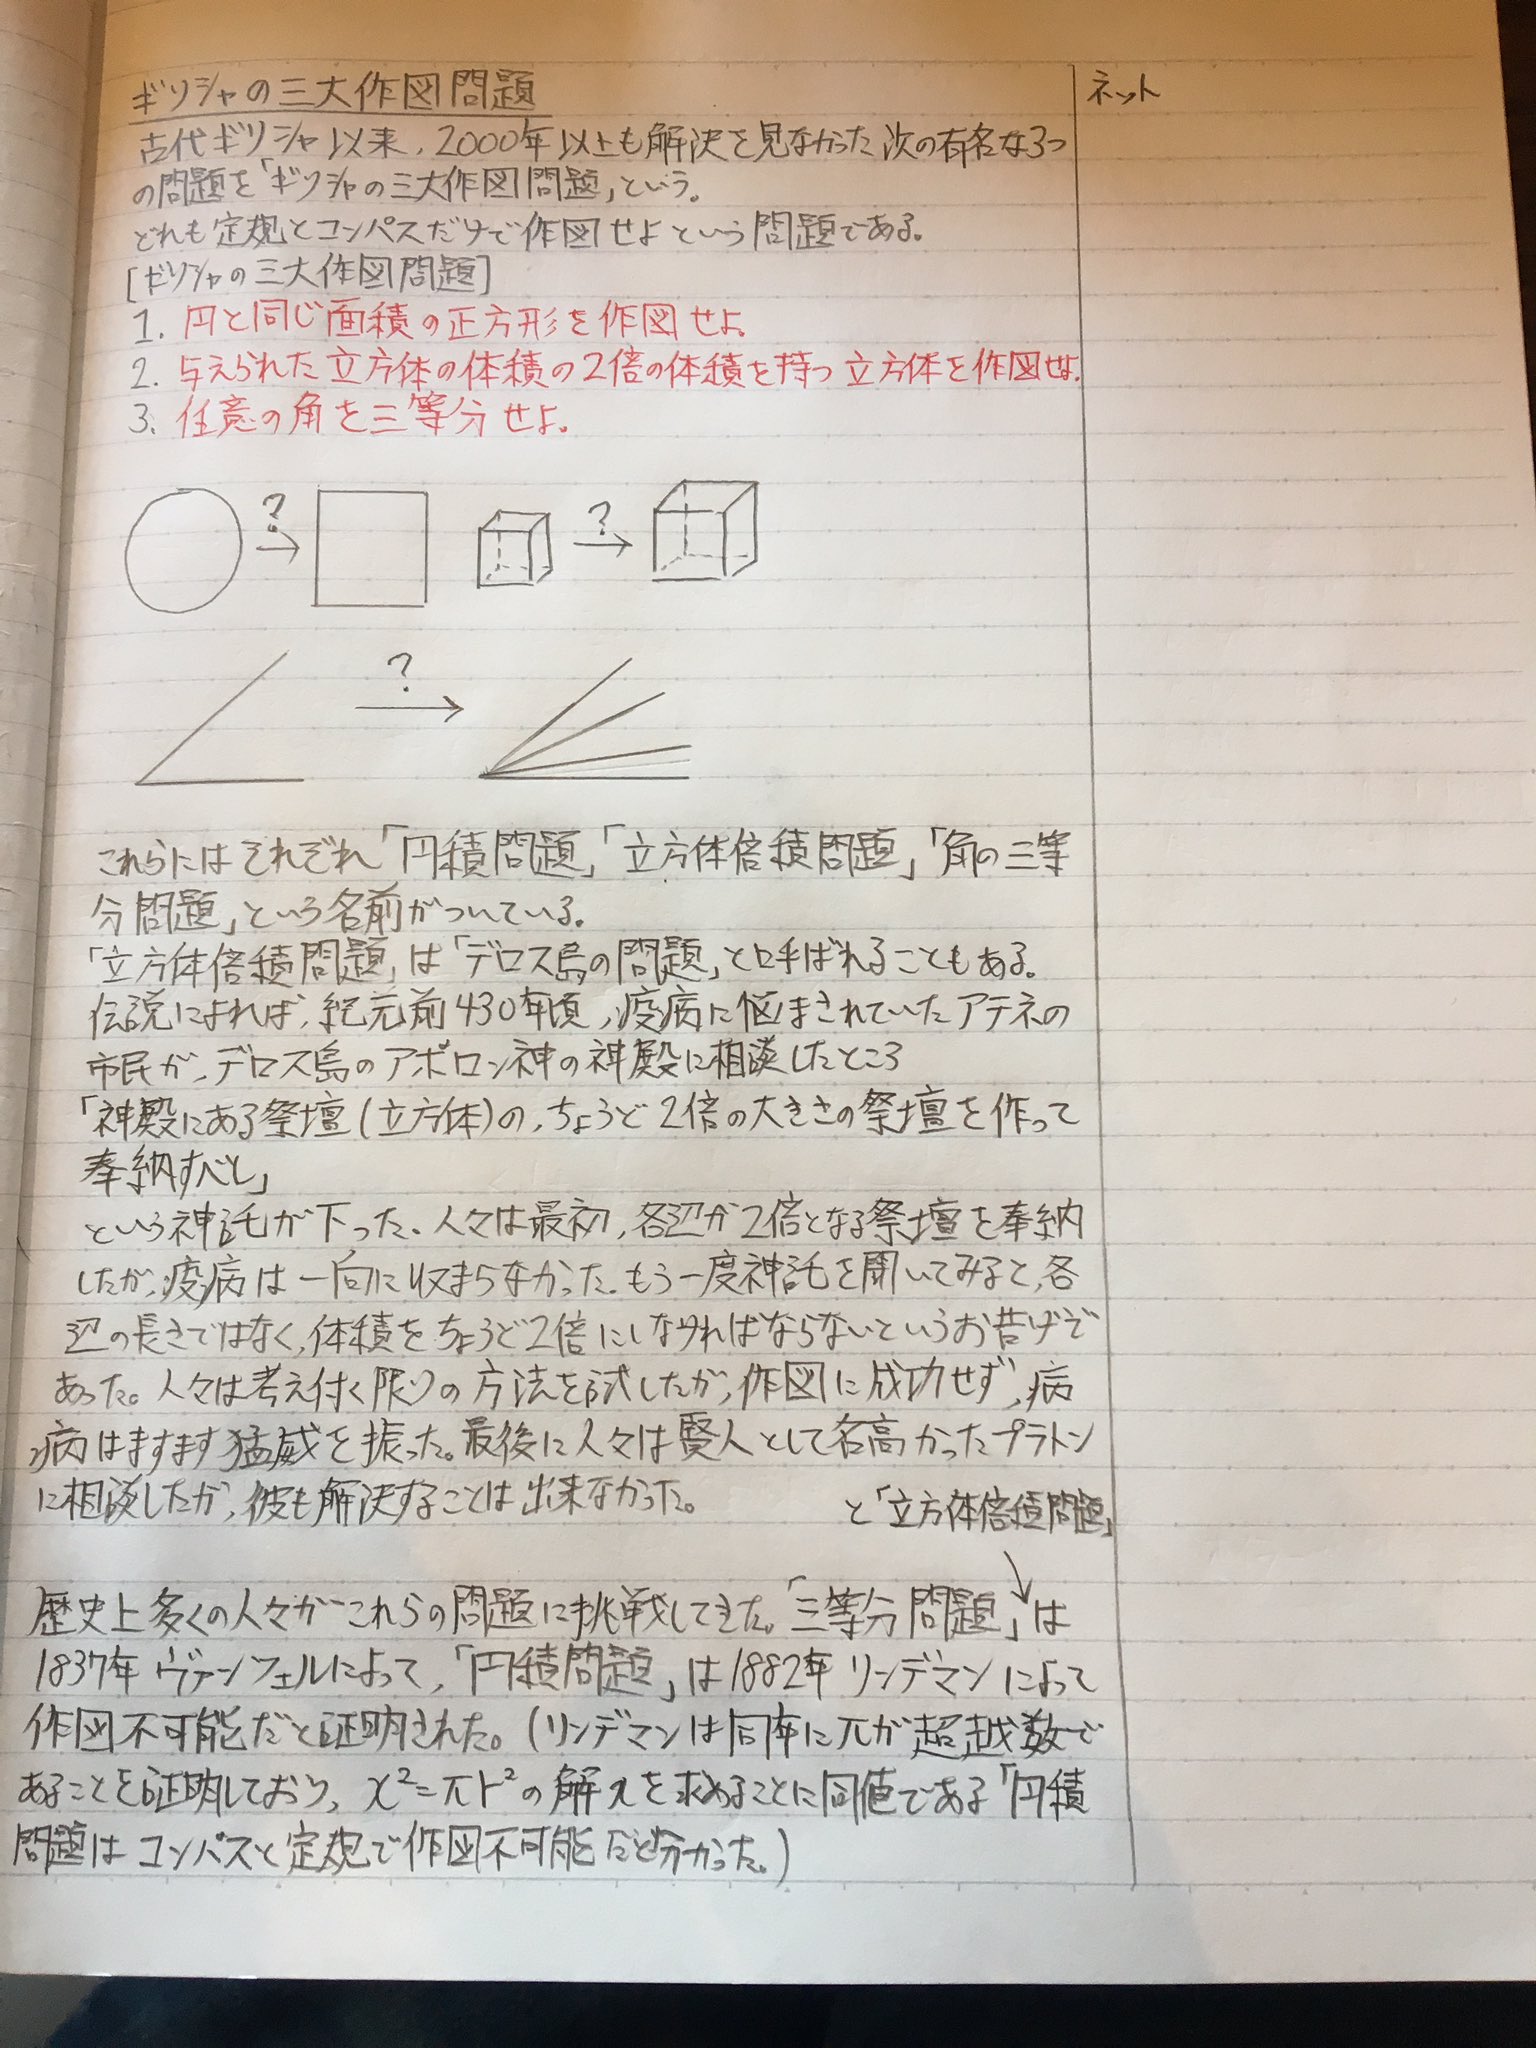 ギリシャの三大作図問題
ネット
古代ギリシャ以来、2000年以上も解決を見なかった次の有名な3つ
の問題を「ギリシャの三大作図問題」という。
どれも定規とコンパスだけで作図せよという問題である。
[ギリシャの三大作図問題]
1. 円と同じ面積の正方形を作図せよ。
2. 与えられた立方体の体積の2倍の体積を持つ立方体を作図せよ.
3. 任意の角を三等分せよ。
?
?
?
これらにはそれぞれ「円積問題」「立方体倍積問題」「角の三等
分問題」という名前がついている。
「立方体倍積問題」は「デロス島の問題」と呼ばれることもある。
伝説によれば、紀元前430年頃、疫病に悩まされていたアテネの
市民が、デロス島のアポロン神の神殿に相談したところ
「神殿にある祭壇(立方体)の、ちょうど2倍の大きさの祭壇を作って
奉納すべし」
という神託が下った。人々は最初、各辺が2倍となる祭壇を奉納
したが、疫病は一向に収まらなかった。もう一度神託を聞いてみると、各
辺の長さではなく、体積をちょうど2倍にしなければならないというお告げで
あった。人々は考え付く限りの方法を試したが、作図に成功せず、病
病はますます猛威を振った。最後に人々は賢人として名高かったプラトン
に相談したが、彼も解決することは出来なかった。
と「立方体倍積問題」
歴史上多くの人々がこれらの問題に挑戦してきた。「三等分問題」は
1837年ヴァンツェルによって、「円積問題」は1882年リンデマンによって
作図不可能だと証明された。(リンデマンは同年にπが超越数で
あることを証明しており、x²=πr²の解xを求めることに同値である「円積
問題はコンパスと定規で作図不可能だと分かった。)